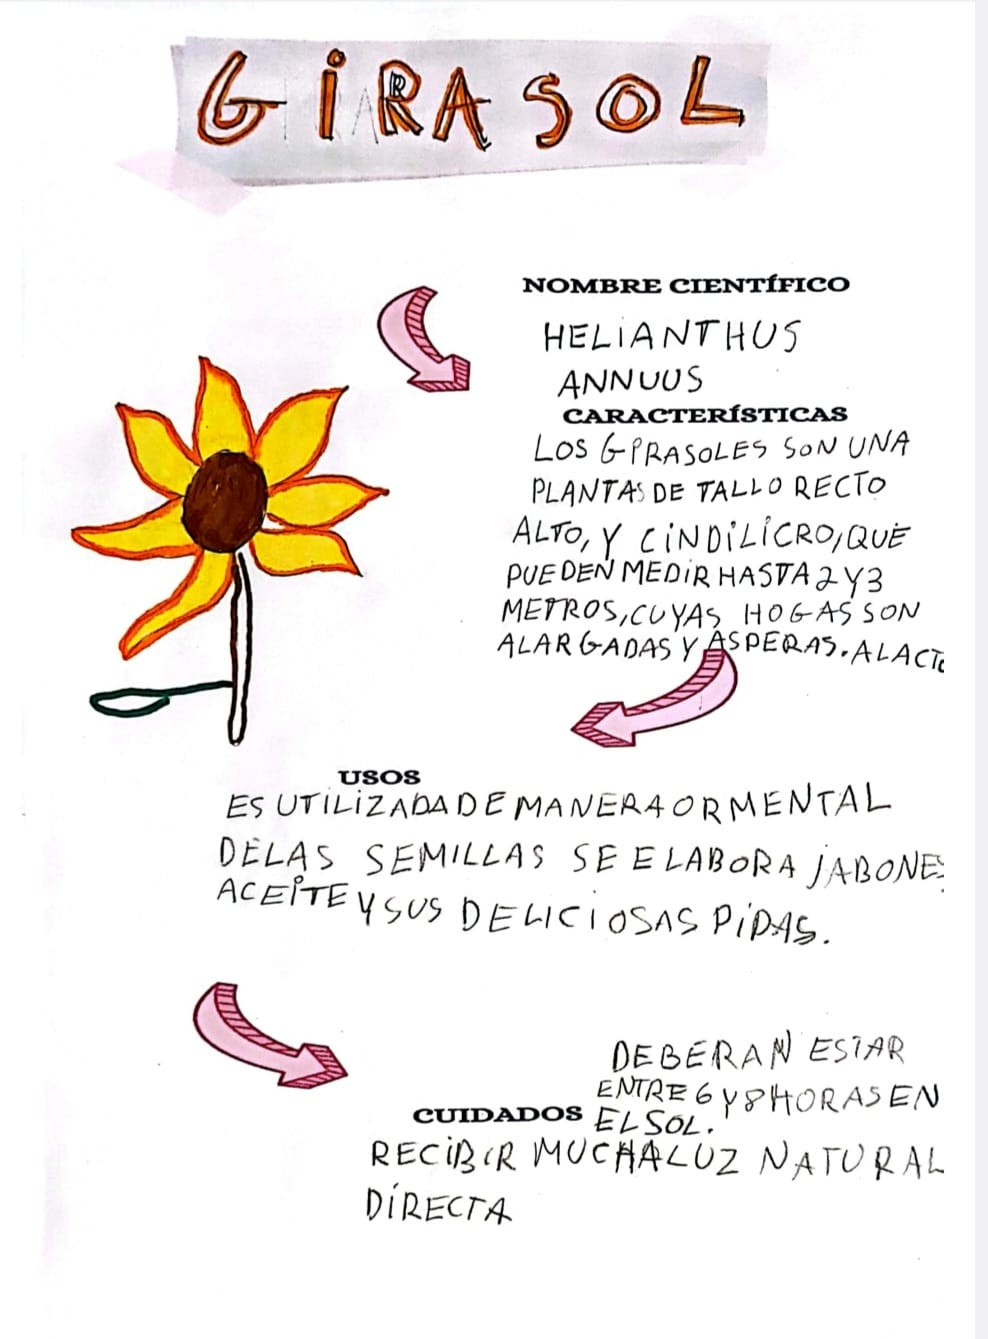 GIRASOL
NOMBRE CIENTÍFICO
HELIANTHUS
ANNUUS
CARACTERÍSTICAS
LOS GIRASOLES SON UNA
PLANTAS DE TALLO RECTO
ALTO, Y CINDILICRO, QUE
PUEDEN MEDIR HASTA 2 Y 3
METROS, CUYAS HOGAS SON
ALARGADAS Y ASPERAS. ALACTO
USOS
ES UTILIZADA DE MANERA ORMENTAL
DE LAS SEMILLAS SE ELABORA JABONES
ACEITE Y SUS DELICIOSAS PIPAS.
DEBERAN ESTAR
ENTRE 6 Y 8 HORAS EN
EL SOL.
CUIDADOS
RECIBIR MUCHA LUZ NATURAL
DÍRECTA